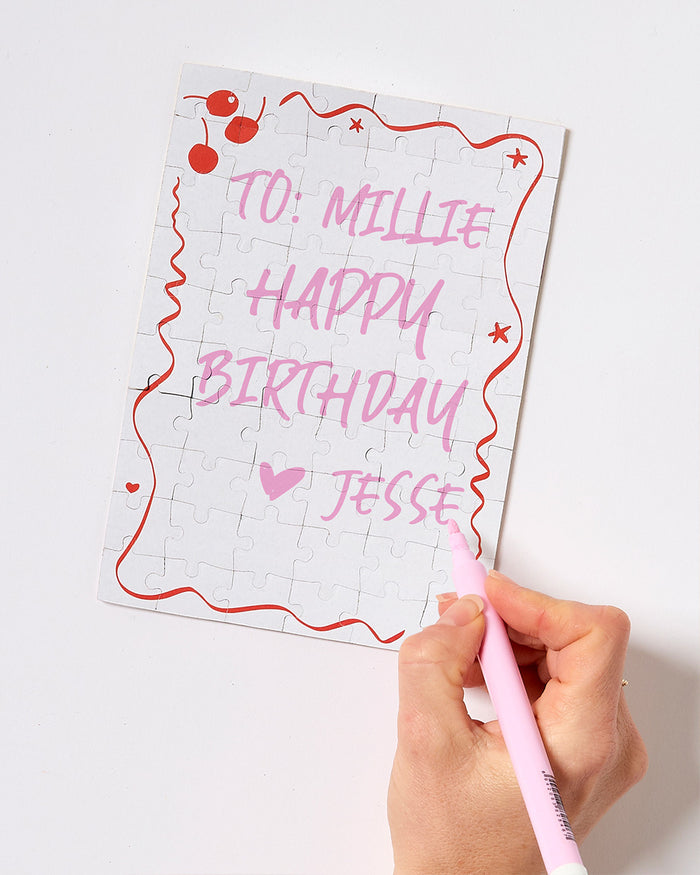 TO: MILLIE
HAPPY
BIRTHDAY
♥ JESSE